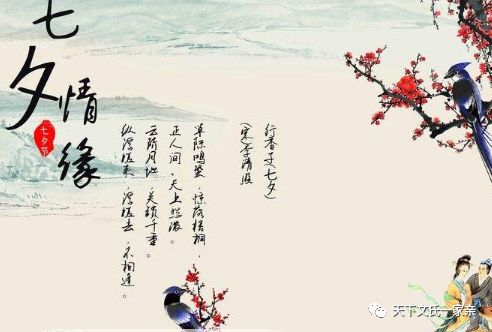 七夕情缘
七夕节
行香子(七夕)
(宋 李清照)
草际鸣蛩，惊落梧桐，
正人间、天上愁浓。
云阶月地，关锁千重。
纵浮槎来，浮槎去，不相逢。
天下文氏一家亲